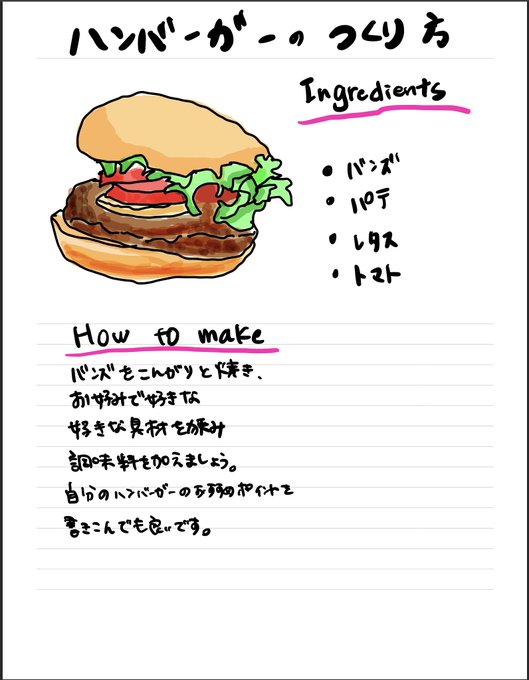 ハンバーガーの つくり方
Ingredients
• バンズ
• パテ
• レタス
• トマト
How to make
バンズをこんがりと焼き、
お好みで好きな
好きな具材を挟み
調味料を加えましょう。
自分のハンバーガーのおすすめポイントを
書きこんでも良いです。